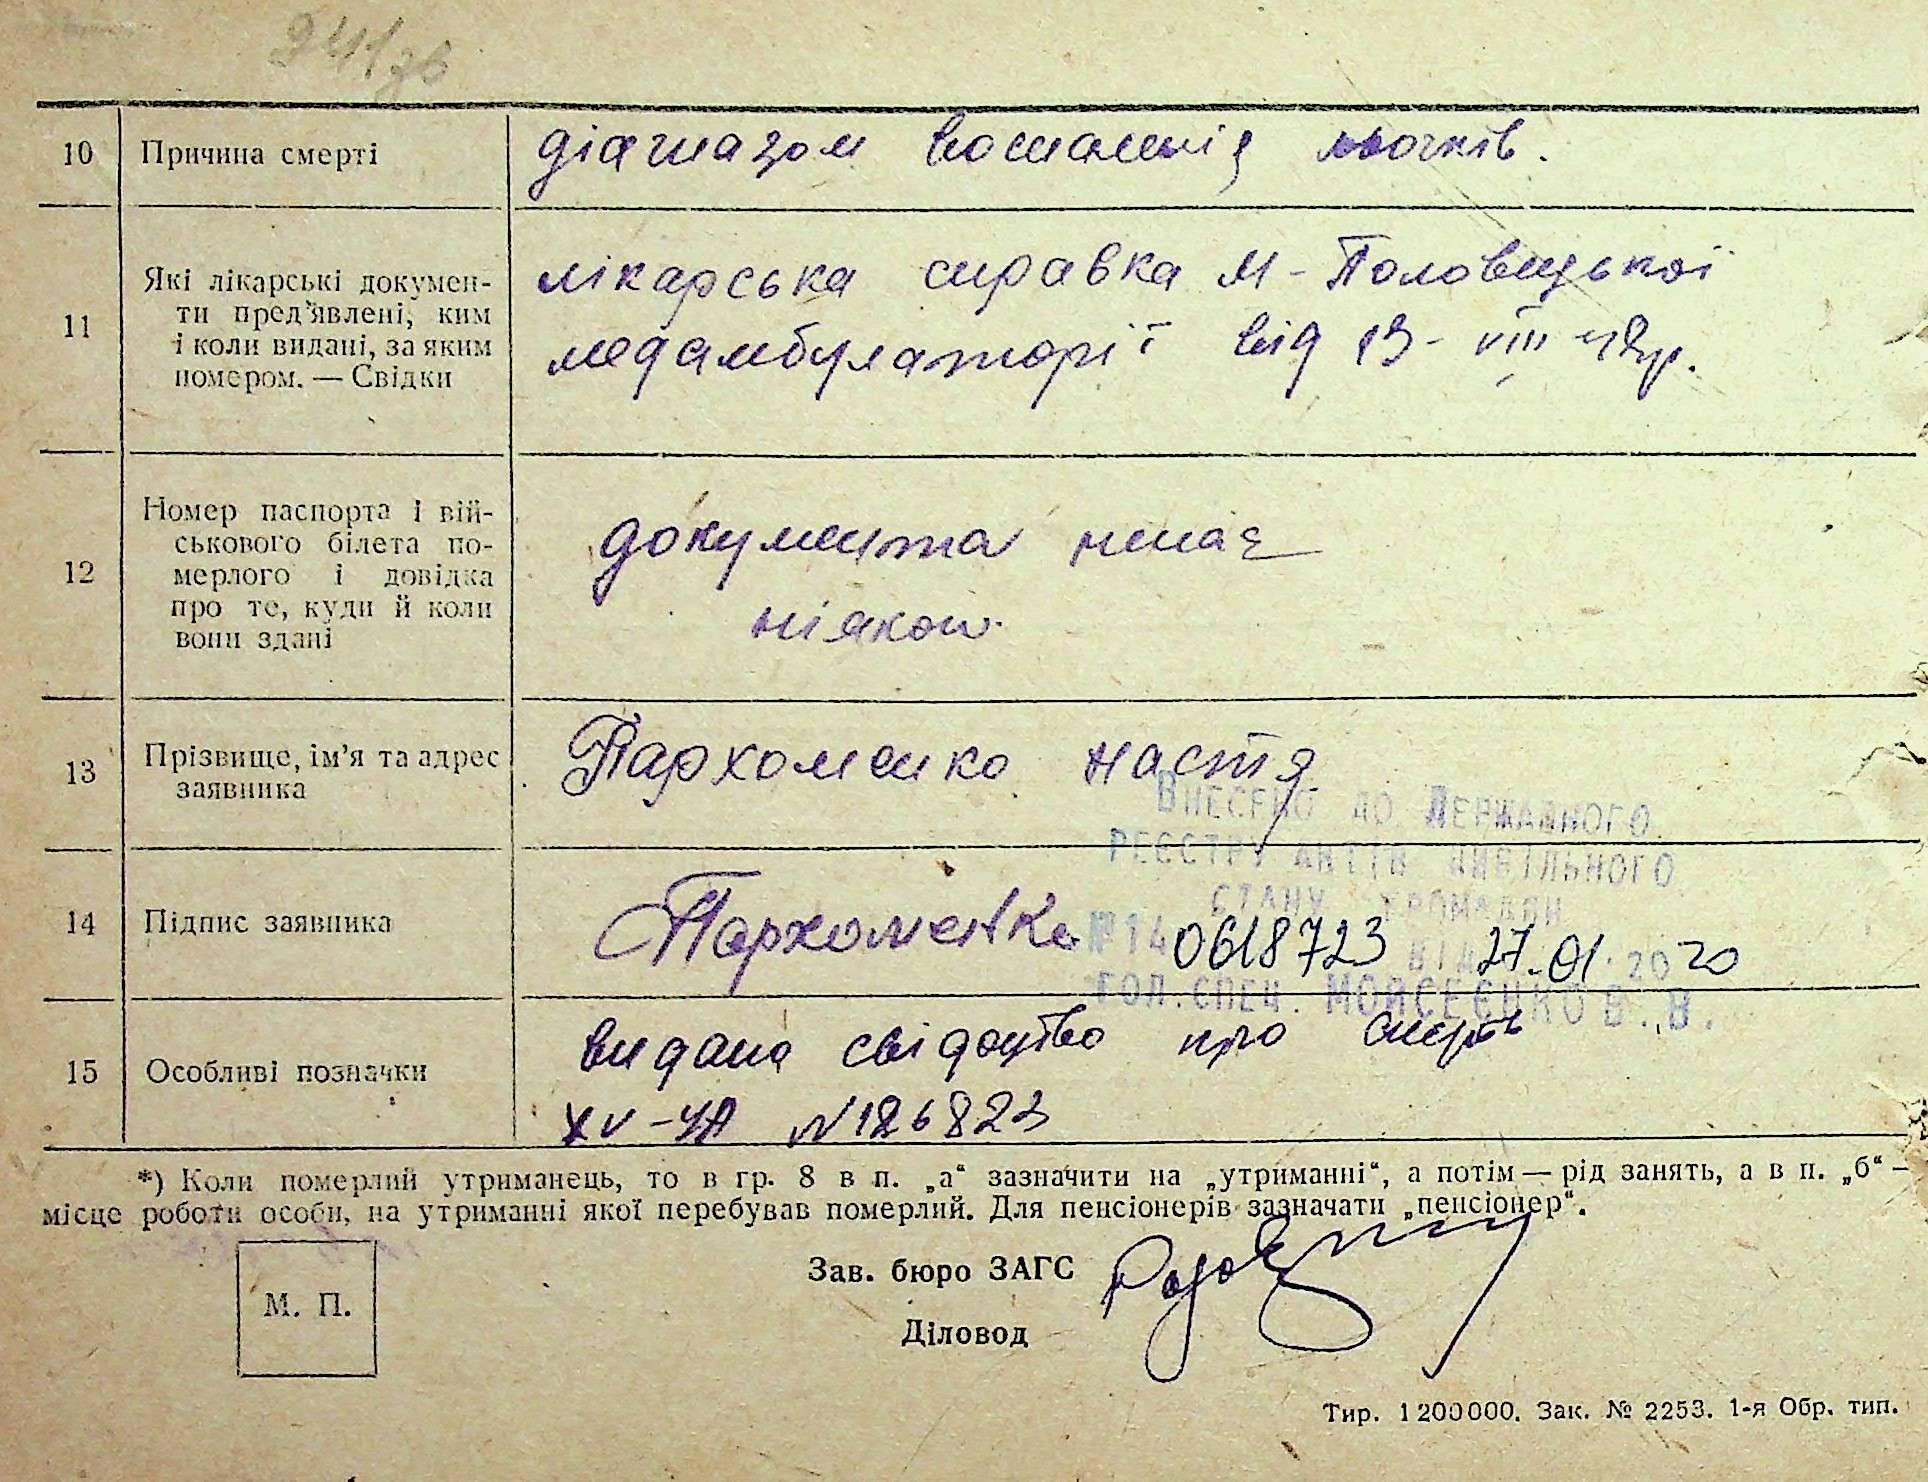 241зв
10 Причина смерті діагназом воспаленія
11 Які лікарські докумен-
ти пред'явлені, ким
і коли видані, за яким
номером. — Свідки
лікарська справка М-Половецької
медамбулаторії від 13-VIII-48р.
12 Номер паспорта і вій-
ськового білета по-
мерлого і довідка
про те, куди й коли
вони здані
документа немає
ніякого
13 Прізвище, ім'я та адрес
заявника
Пархоменко Настя
Внесено до Державного
реєстру актів цивільного
стану громадян
14 Підпис заявника Пархоменко
№ 14 0618723 від 27.01.2020
гол. спец. Мойсеєнко В.В.
15 Особливі позначки
видано свідоцтво про смерть
XV-УА N 126823
*) Коли померлий утриманець, то в гр. 8 в п. „а“ зазначити на „утриманні“, а потім — рід занять, а в п. „б“ —
місце роботи особи, на утриманні якої перебував померлий. Для пенсіонерів зазначати „пенсіонер“.
М. П.
Зав. бюро ЗАГС
Діловод
Тир. 1200000. Зак. № 2253. 1-я Обр. тип.